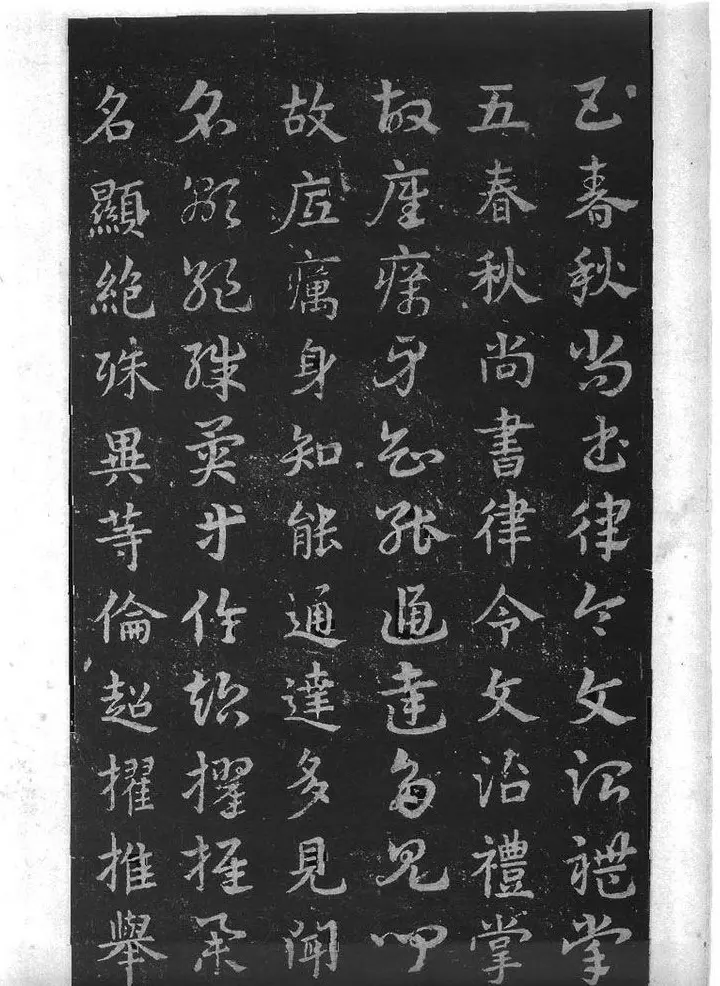 五春秋尚書律令文治禮掌
五春秋尚書律令文治禮掌
故癘身知能通達多見聞
故癘身知能通達多見聞
名顯絕殊異等倫超擢推舉
名顯絕殊異等倫超擢推舉